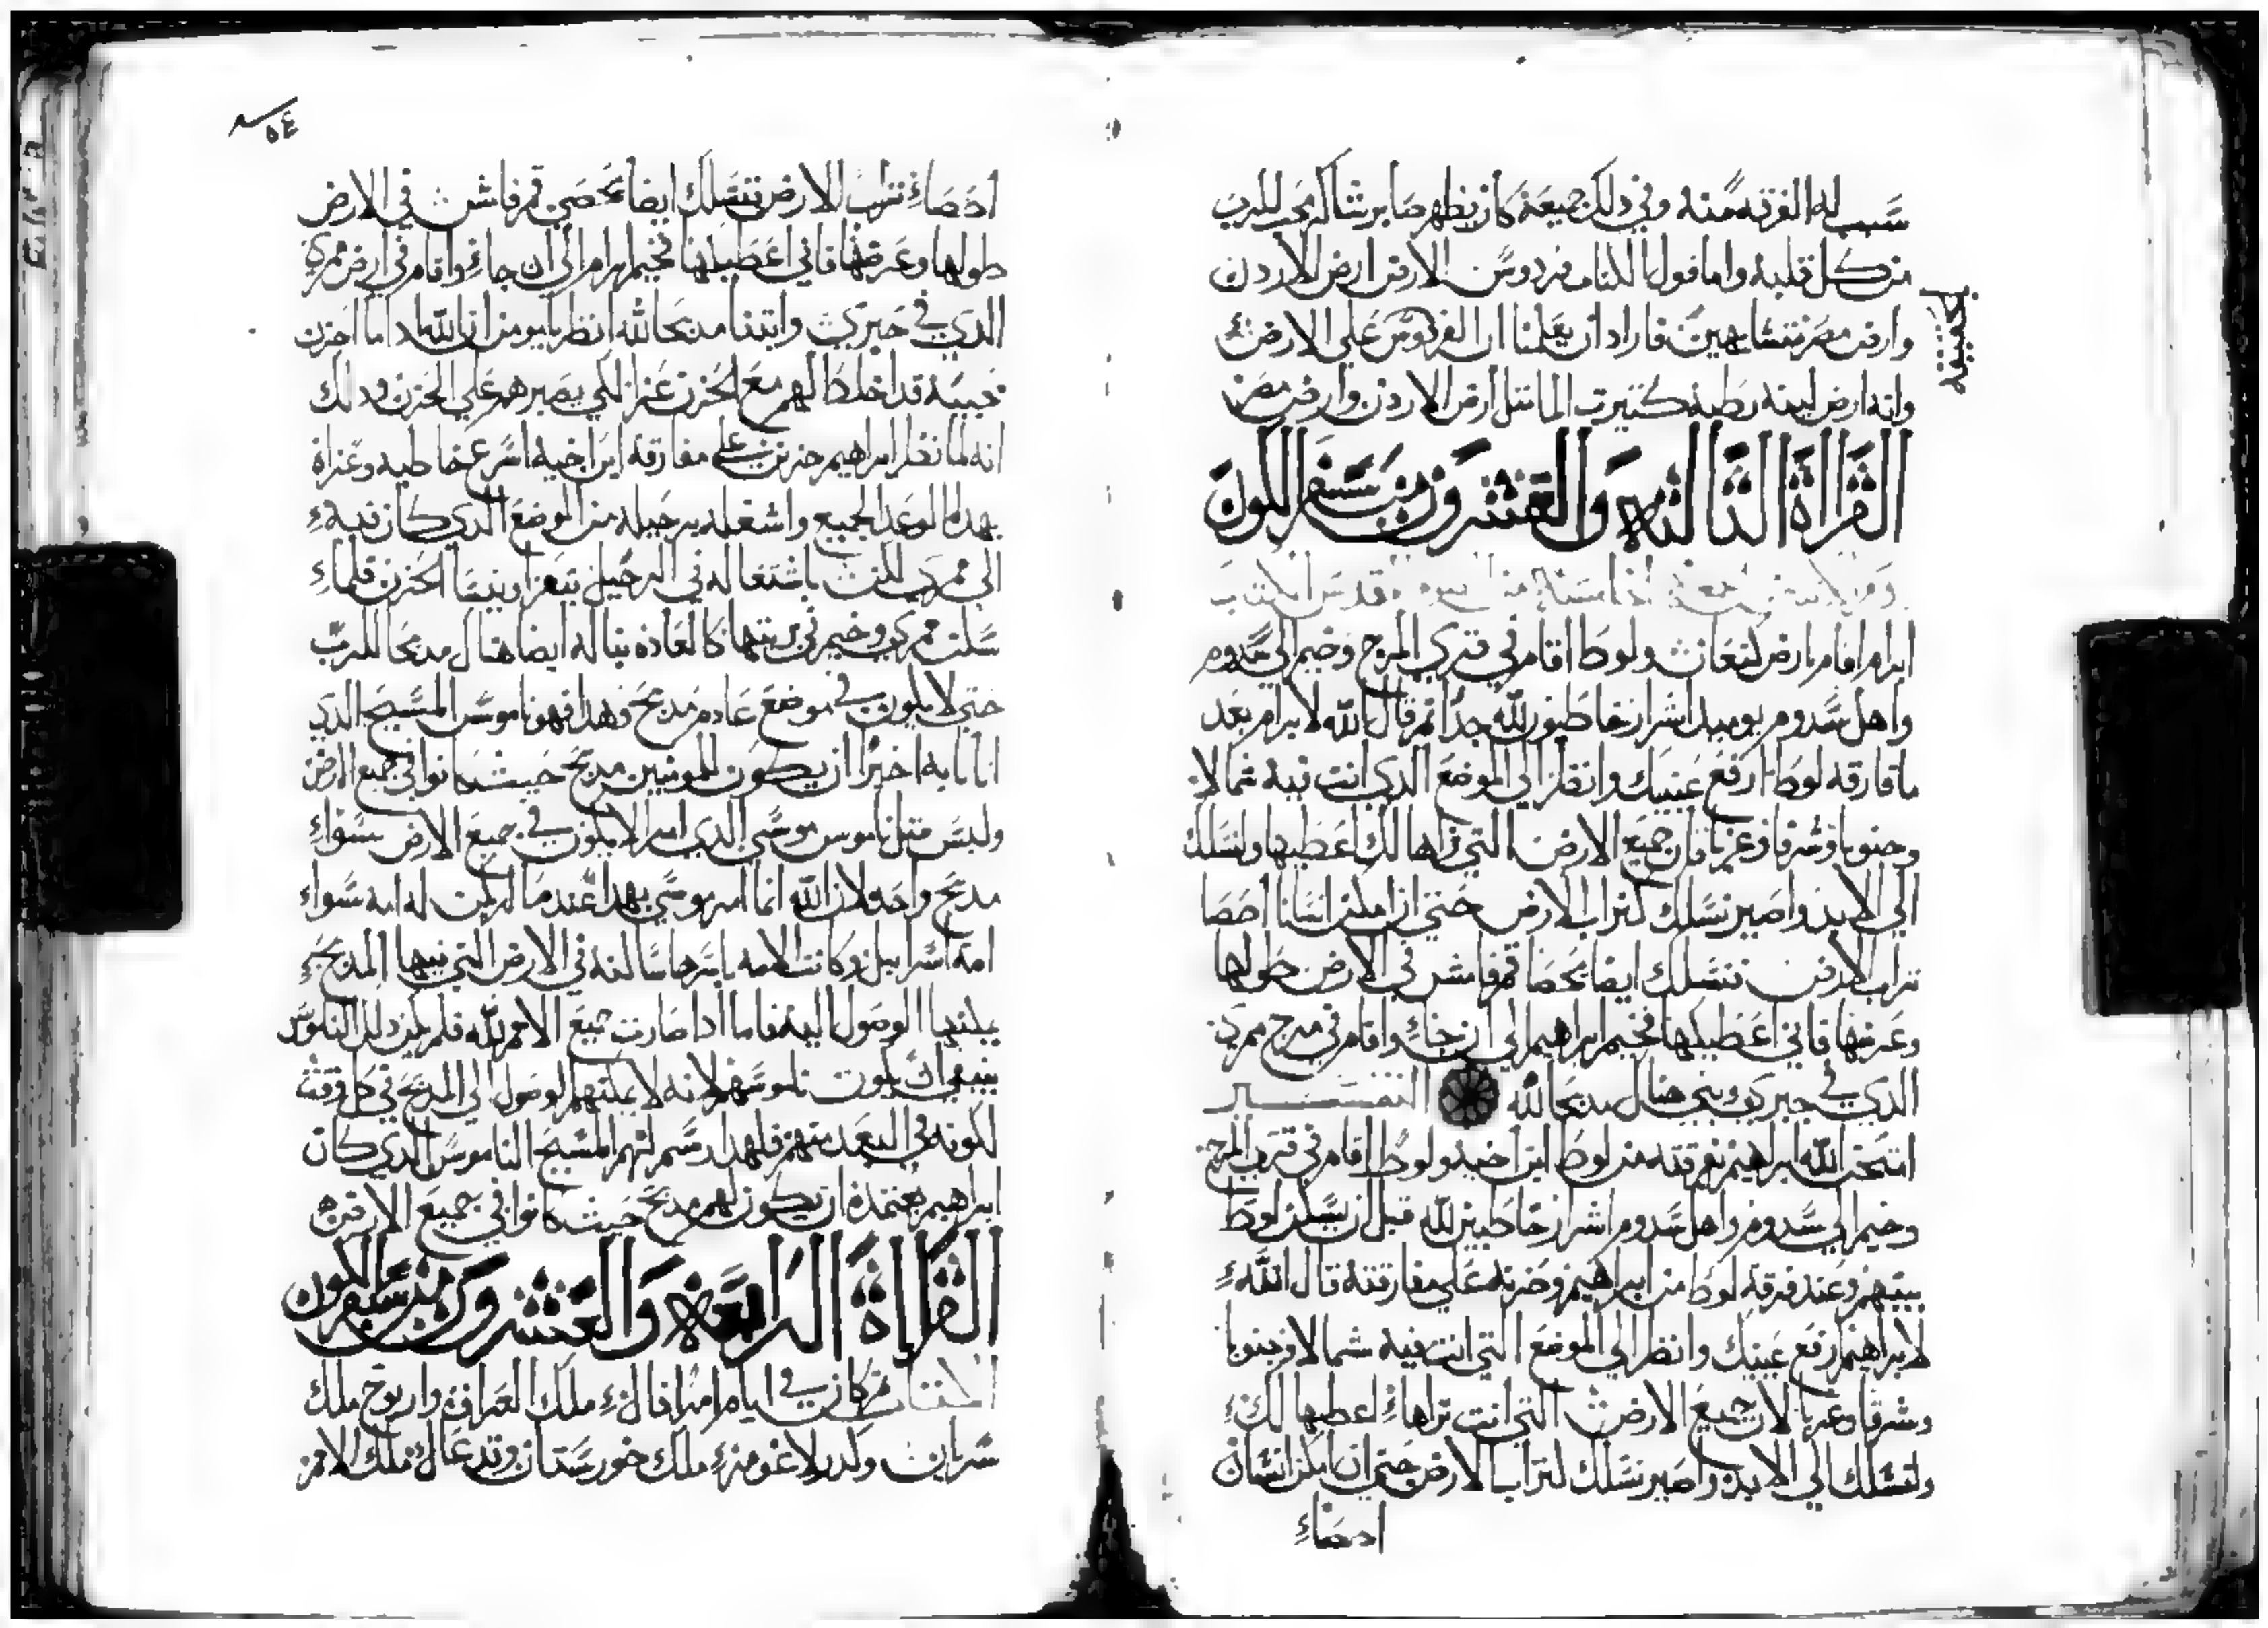 سبب له الفرقه منه وفي ذلك جميعه كان يظهر صابر شاكر محب للرب
من كل قلبه واما قول الكتاب فردوس الارض ارض الاردن
وارض مصر متشابهين فاراد ان يعلمنا ان الفردوس على الارض
وانه ارض لينه رطبه كثيرت الما مثل ارض الاردن وارض مصر
القراة الثالثه والعشرون من سفر الكون
ابرام اقام بارض كنعان ولوط اقام في قري المرج وخيم الي سدوم
واهل سدوم يوميد اشرار خاطيون لله جدا ثم قال الله لابرام بعد
ما فارقه لوط ارفع عينيك وانظر الي الموضع الدي انت فيه شمالا
وجنوبا وشرقا وغربا فان جميع الارض التي تراها لك اعطيها ولنسلك
الي الابد واصير نسلك كتراب الارض حتي ان امكن انسانا احصا
تراب الارض فنسلك ايضا يحصا قم فامش في الارض طولها
وعرضها فاني اعطيكها فخيم ابراهيم الي ان جاء واقام في مرج ممري
الدي في حبري وبني هناك مدبحا لله التفسير
امتحن الله ابراهيم بفرقته من لوط ابن اخيه ولوط اقام في قري المرج
وخيم الي سدوم واهل سدوم اشرار خاطيين لله قبل ان يسكن لوط
بينهم وعند فرقة لوط من ابراهيم وحزنه علي مفارقته قال الله
لابراهيم ارفع عينيك وانظر الي الموضع التي انت فيه شمالا وجنوبا
وشرقا وغربا لان جميع الارض التي انت تراها اعطيها لك
ولنسلك الي الابد واصير نسلك كتراب الارض حتي ان امكن انسان
احصاء
٥٤
احصاء تراب الارض فنسلك ايضا يحصي قم فامش في الارض
طولها وعرضها فاني اعطيكها فخيم ابرام الي ان جاء واقام في ارض ممري
الدي في حبري وابتنا مدبحا لله انظر يا مومن ان الله ما احزن
حبيبه قد اخلط لهم مع الحزن عزا لكي يصبرهم علي الحزن ودلك
انه لما نظر ابراهيم حزين علي مفارقه ابن اخيه اسرع خاطبه وعزاه
بهدا الوعد الجميع واشغله برحيله من الموضع الدي كان فيه
الي ممري لكن باشتغاله في الرحيل يتعزا وينسا الحزن فلما
سكن ممري وخيم في بريتها كالعاده بنا له ايضا هناك مدبحا للرب
حتي لا يكون في موضع عادم مدبح وهدا فهو ناموس المسيح الدي
اتانا به اخيرا ان يكون للمومنين مدبح حيث كانوا في جميع الارض
وليس مثل ناموس موسي الدي امر الا يكون في جميع الارض سواء
مدبح واحد ولان الله انما امر موسي بهدا عندما لم يكن له امه سواء
امه اسراييل وكانت الامه باسرها ساكنه في الارض التي فيها المدبح
يمكنها الوصول اليه فاما ادا صارت جميع الامم لله فلم يكن دلك الناموس
ينبغي ان يكون ناموسهم لانه لا يمكنهم الوصول الي المدبح في كل وقت
لكونه في البعد منهم فلهدا رسم لهم المسيح الناموس الدي كان
ابراهيم يعتمده ان يكون لهم مدبح حيث كانوا في جميع الارض
القراة الرابعه والعشرون من سفر الكون
كان في ايام امرافال ملك العراق واريوخ ملك
سريان وكدرلاغومر ملك خورستان وتدعال ملك الامم